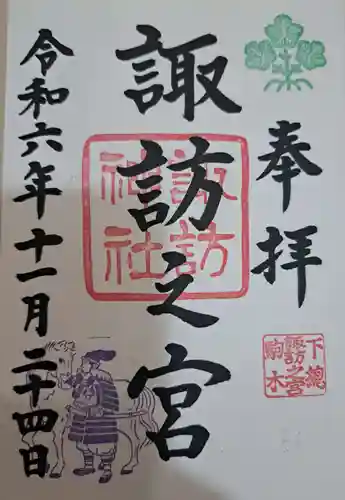 奉拝
下總
諏訪之宮
駒木
諏訪之宮
諏訪
神社
令和六年十一月二十四日